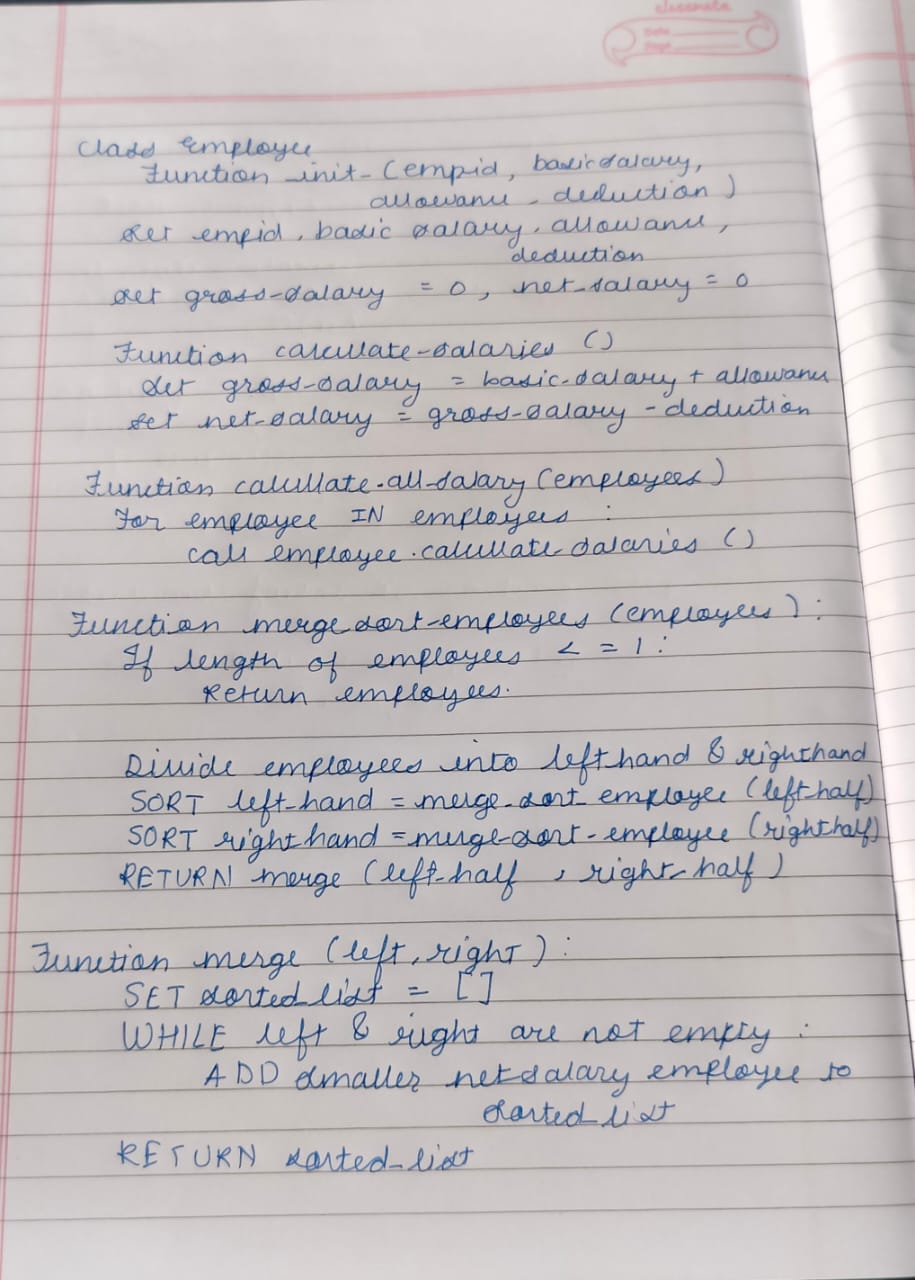 classmate
Date
Page
Class Employee
Function -init- (empid, basic salary,
allowance, deduction)
Set empid, basic salary, allowance,
deduction
Set gross-salary = 0, net-salary = 0
Function calculate-salaries ()
Set gross-salary = basic-salary + allowance
Set net-salary = gross-salary - deduction
Function calculate-all-salary (employees)
For employee IN employees :
call employee.calculate-salaries ()
Function merge sort-employees (employees) :
If length of employees < = 1 :
Return employees.
Divide employees into left hand & right hand
SORT left-hand = merge-sort employee (left-half)
SORT right hand = merge-sort-employee (right half)
RETURN merge (left-half , right-half)
Function merge (left, right) :
SET sorted_list = []
WHILE left & right are not empty :
ADD smaller net salary employee to
sorted_list
RETURN sorted_list